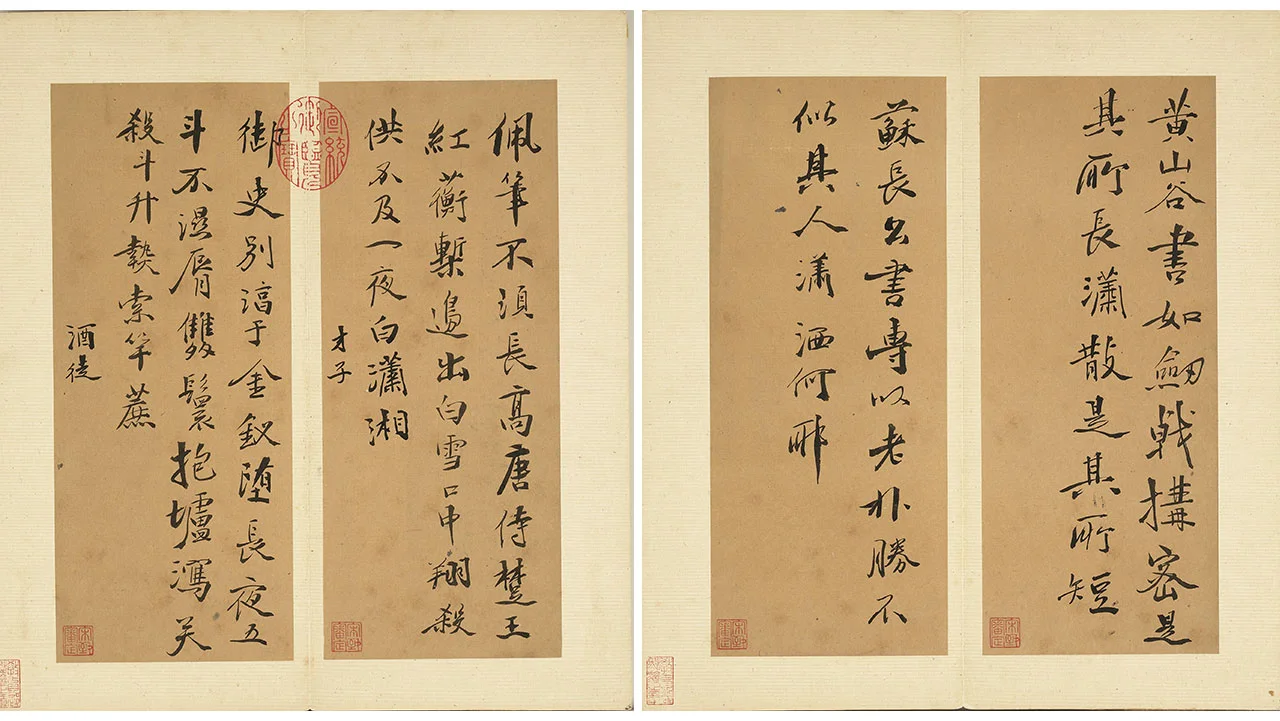 黄山谷書如劔戟搆密是
其所長瀟散是其所短
蘇長公書專以老朴勝不
似其人瀟洒何耶
佩筆不須長高唐侍楚王
紅蘅槧邊出白雪口中翔殺
供不及一夜白瀟湘
才子
宣統御覽之寶
御史别淳于金釵墮長夜五
斗不濕脣雙鬟抱壚瀉笑
殺斗升索竿蔗
酒徒